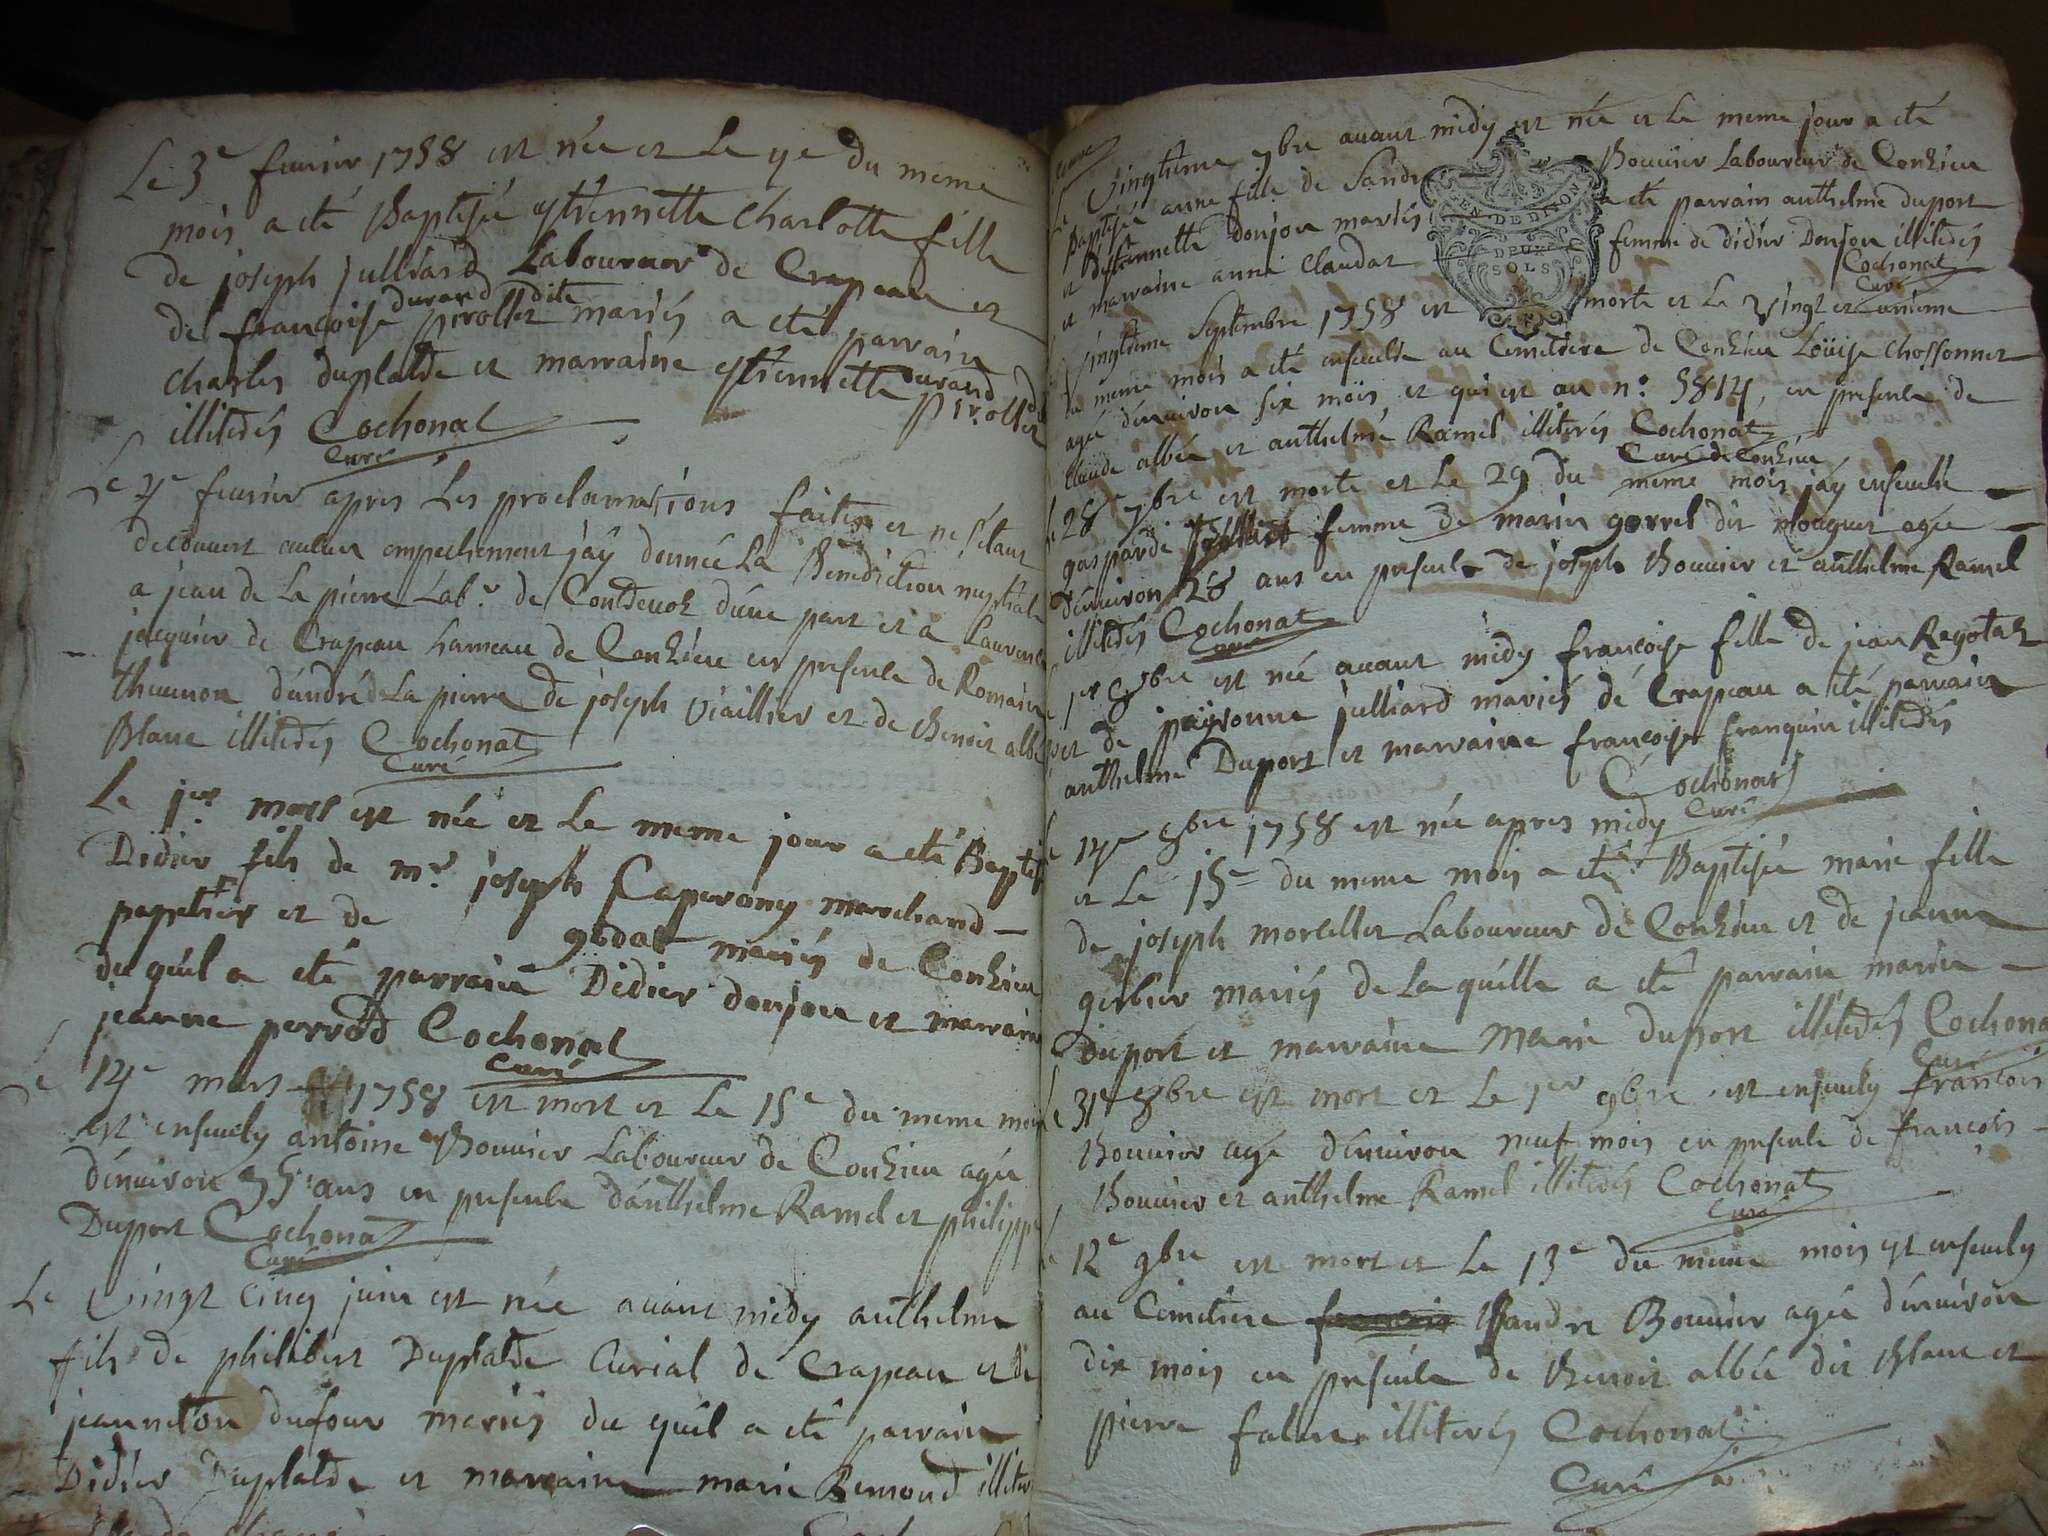 Le 3e fevrier 1758 est née et Le 9e du meme
mois a eté Baptisée ythiennette Charlotte fille
de joseph julliard Laboureur de Crapeau et
de françoise durand dite pirollet mariés a eté parrain
Charles duplatde et marraine ythiennette durand
pirollet
illiterés Cochonat
Curé
Le 7e fevrier apres Les proclamations faites et ne s'etant
decouvert aucun empechement j'ay donnée La Benediction nuptiale
a jean de La pierre Labr. de Contdevoz d'une part et a Laurence
jacquier de Crapeau hameau de Conzieu en presence de Romain
thevenon d'andré de La pierre de joseph viaillier et de Benoit albée
Blanc illiterés Cochonat
Curé
Le 1er mars est née et Le meme jour a eté Baptisé
Didier fils de mr. joseph Caperony marchand
papetier et de godat mariés de Conzieu
du quel a eté parrain Didier donjon et marraine
jeanne perrod Cochonat
Curé
Le 14e mars 1758 est mort et Le 15e du meme mois
est ensevely antoine Bouvier Laboureur de Conzieu agée
d'environ 35 ans en presence d'anthelme Ramel et philippe
Duport Cochonat
Curé
Le vingt cinq juin est née avant midy anthelme
fils de philibert Duplatde Curial de Crapeau et de
jeanneton dufour mariés du quel a eté parrain
Didier Duplatde et marraine marie Bemond illiter
Le vingtieme 7bre avant midy est née et Le meme jour a eté
Baptisée anne fille de Sandr Bouvier Laboureur de Conzieu
et d'ythiennette donjon mariés a eté parrain anthelme duport
et marraine anne Claudat femme de didier Donjon illiterés
Cochonat
Curé
GEN. DE DIJON
DEUX
SOLS
vingtieme Septembre 1758 est morte et Le vingt et unieme
du meme mois a eté ensevelie au Cemetiere de Conzieu Loüise Chossonnet
agée d'environ six mois et qui est au n°. 5814, en presence de
Claude albée et anthelme Ramel illiterés Cochonat
Curé de Conzieu
Le 28e 7bre est morte et Le 29 du meme mois j'ay ensevelie
gasparde femme de marin gorrel dit mouguet agée
d'environ 28 ans en presence de joseph Bouvier et anthelme Ramel
illiterés Cochonat
Curé
Le 1er 8bre est née avant midy françoise fille de jean Regotaz
et de peÿronne julliard mariés de Crapeau a eté parrain
anthelme Duport et marraine françoise franquin illiterés
Cochonat
Curé
Le 14e 8bre 1758 est née apres midy
et Le 15e du meme mois a eté Baptisée marie fille
de joseph morellet Laboureur de Conzieu et de jeanne
gerbier mariés de La quelle a eté parrain marin
duport et marraine Marie duport illiterés Cochonat
Curé
Le 31e 8bre est mort et Le 1er 9bre est ensevely françois
Bouvier agé d'environ neuf mois en presence de françois
Bouvier et anthelme Ramel illiterés Cochonat
Curé
Le 12e 9bre est mort et Le 13e du meme mois est ensevely
au Cimetiere françois Sandre Bouvier agée d'environ
dix mois en presence de Benoit albée dit Blanc et
pierre falen illiterés Cochonat
Curé